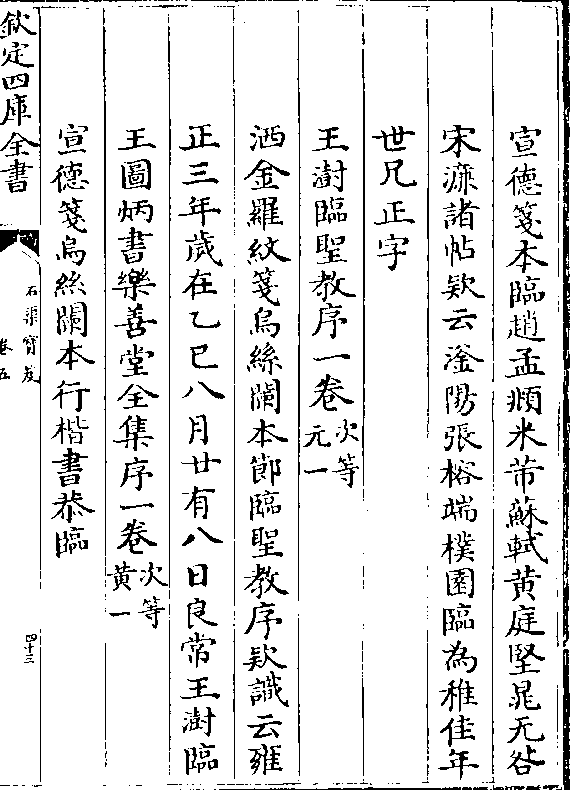 宣德箋本臨趙孟頫米芾蘇軾黄庭堅晁无咎
宋濂諸帖欵云滏陽張榕端樸園臨為稚佳年
世兄正字
王澍臨聖教序一卷次等元一
洒金羅紋箋烏絲闌本節臨聖教序欵識云雍
正三年歲在乙巳八月廿有八日良常王澍臨
王圖炳書樂善堂全集序一卷次等黄一
宣德箋烏絲闌本行楷書恭臨
欽定四庫全書
石渠寶笈
卷五
四十三